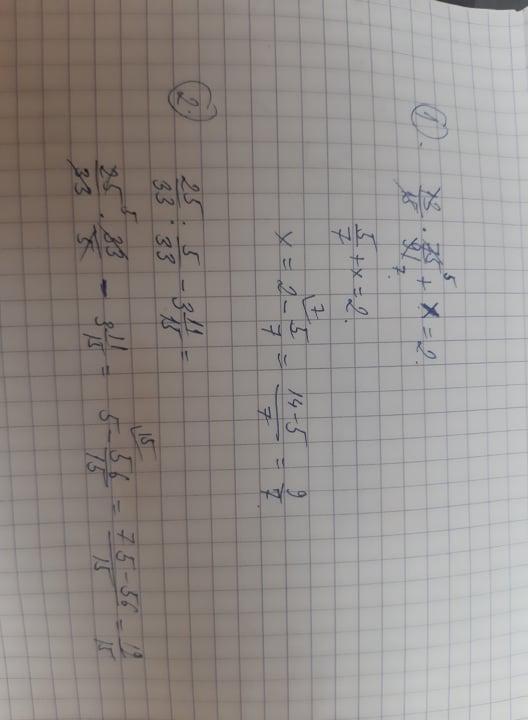 1. 13/15 · 75⁵/91₇ + x = 2.
5/7 + x = 2.
x = 2⁷ - 5/7 = 14-5/7 = 9/7
2. 25/33 : 5/33 - 3 11/15 =
25⁵/33 · 33/5 - 3 11/15 = 5¹⁵ - 56/15 = 75-56/15 = 19/15